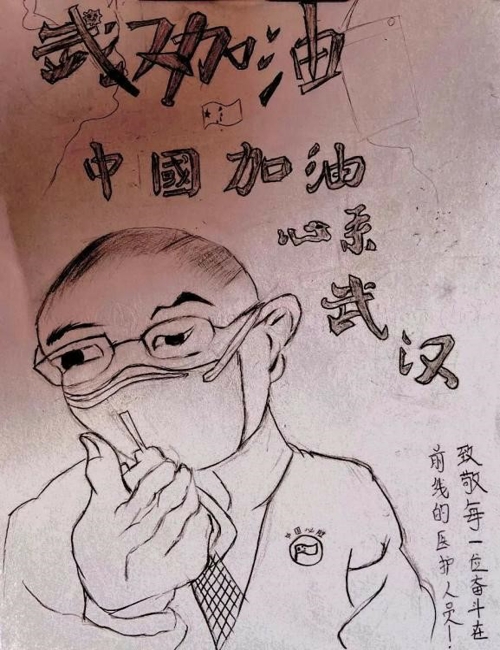 武汉加油
中國加油
心系
武汉
致敬每一位奋斗在
前线的医护人员!
中国必胜